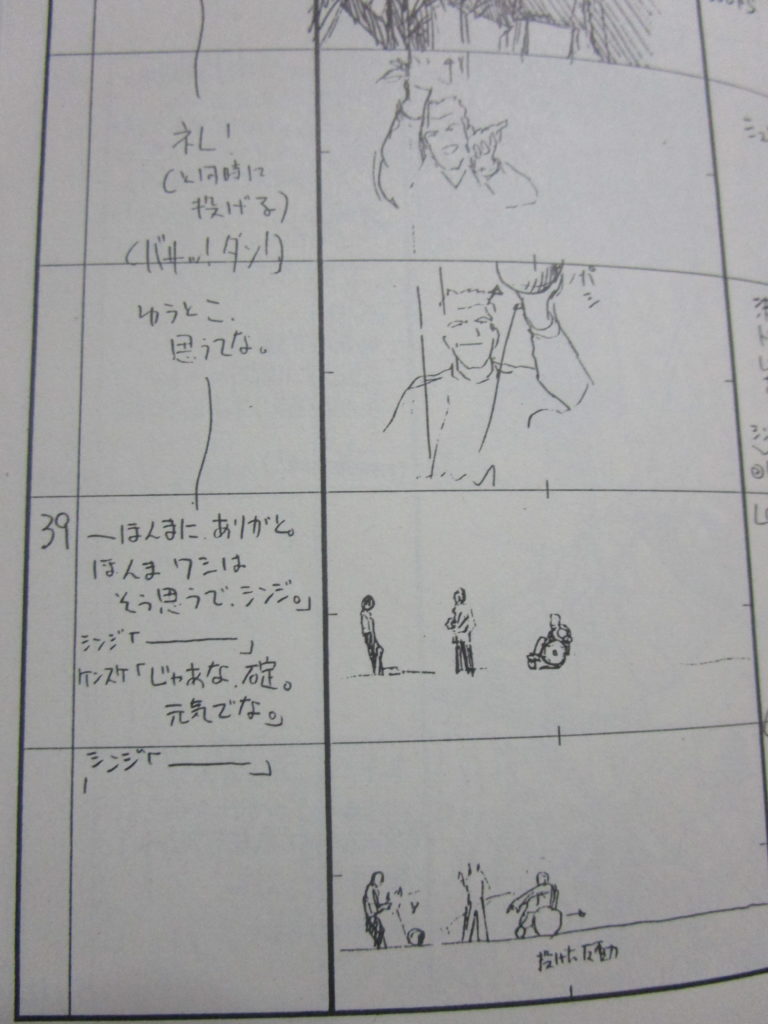 礼!
(と同時に
投げる)
(バサッ!ダン!)
パシ
ゆうとこ、
思うてな。
39
―ほんまに、ありがと。
ほんま ワシは
そう思うで、シンジ。」
シンジ「―――」
ケンスケ「じゃあな、碇。
元気でな。」
シンジ「―――」
投げた反動